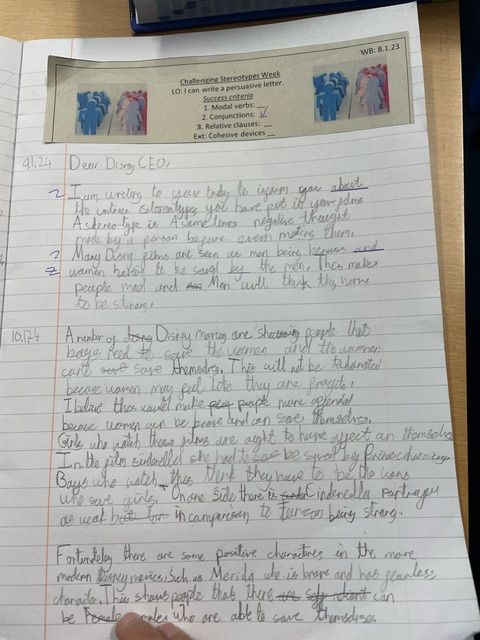 WB: 8.1.23
Challenging Stereotypes Week
LO: I can write a persuasive letter.
Success criteria
1. Modal verbs: __
2. Conjunctions: ✓
3. Relative clauses: __
Ext: Cohesive devices __
9.1.24
Dear Disney CEO,
I am writing to you today to inform you about
the stereotypes you have put in your films
A stereotype is A sometimes negative thought
made by a person before even meeting them.
Many films are seen as men being and
women to be saved by the men. This makes
people mad and Men will think they
to be strong.
10.1.24
A number of Disney movies are people that
boys need to save the women and the women
can't save themselves. This will not be
because women may feel like they are fragile.
I this would make people more
because women can be brave and can save themselves.
Girls who watch these films are to have affect on themselves
In the film she had to be saved by
Boys who watch this think they have to be the ones
who save girls. On one side there is
as weak in comparison to being strong.
Fortunately there are some positive in the more
modern Disney movies. Such as Merida who is brave and has fearless
This shows people that there can
be who are able to save themselves